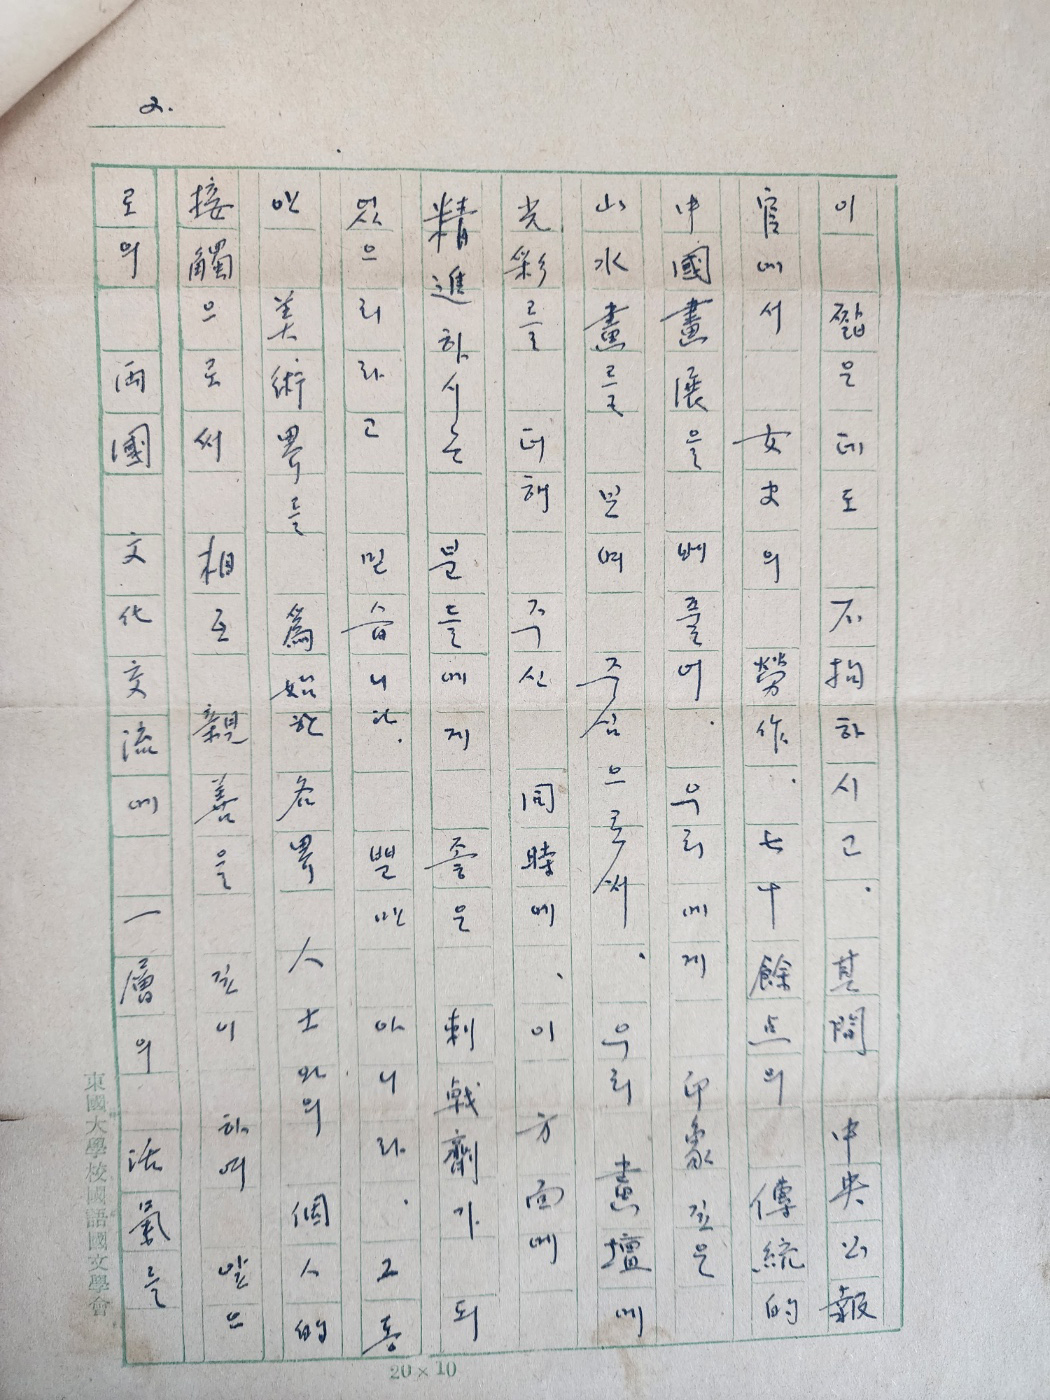 2.
이 짧은 데도 不拘하시고. 其間 中央公報
館에서 女史의 勞作. 七十餘点의 傳統的
中國畵展을 베풀어. 우리에게 印象깊은
山水畵를 보여 주심으로써. 우리 畵壇에
光彩를 더해 주신 同時에. 이 方面에
精進하시는 분들에게 좋은 刺戟劑가 되
었으리라고 믿습니다. 뿐만 아니라. 그동
안 美術界를 爲始한 各界 人士와의 個人的
接觸으로써 相互 親善을 깊이 하여 앞으
로의 両國 文化交流에 一層의 活氣를
東國大學校國語國文學會
20×10